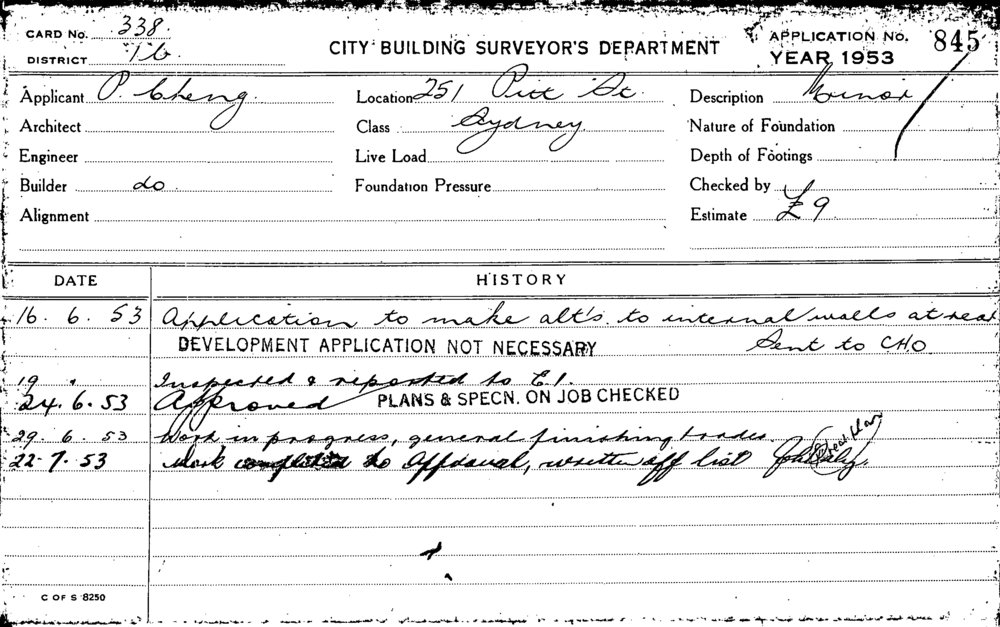 CARD No. 338.
DISTRICT
CITY BUILDING SURVEYOR'S DEPARTMENT
APPLICATION No. 845
YEAR 1953
Applicant P. Cheng.
Architect
Engineer
Builder do
Alignment
Location 251 Pitt St.
Class Sydney
Live Load
Foundation Pressure
Description Minor
Nature of Foundation
Depth of Footings
Checked by
Estimate £9
DATE HISTORY
16. 6. 53 Application to make alt's. to internal walls at rear
DEVELOPMENT APPLICATION NOT NECESSARY Sent to CHO
19 " Inspected & reported to E.I.
24. 6. 53 Approved PLANS & SPECN. ON JOB CHECKED
29. 6. 53 Work in progress, general finishing trades.
22. 7. 53 Work completed to Approval, written off list
C OF S 8250